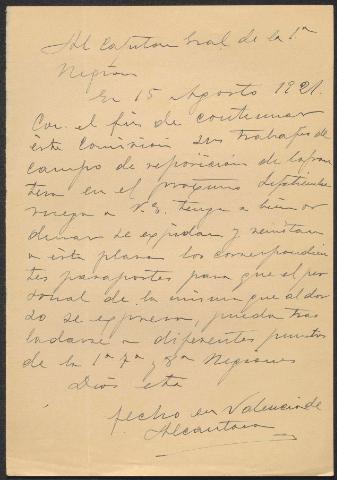 Al Capitan Gral. de la 1ª
Region
En 15 Agosto 1921.
Con el fin de continuar
esta Comision sus trabajos de
campo de reposicion de la fron
tera en el proximo Septiembre
ruego a V.E. tenga a bien or
denar se expidan y remitan
a esta plaza los correspondien
tes pasaportes para que el per
sonal de la misma que al dor
so se expresa, pueda tras
ladarse a diferentes puntos
de la 1ª 7ª y 8ª Regiones
Dios etc
fecho en Valencia de
Alcantara